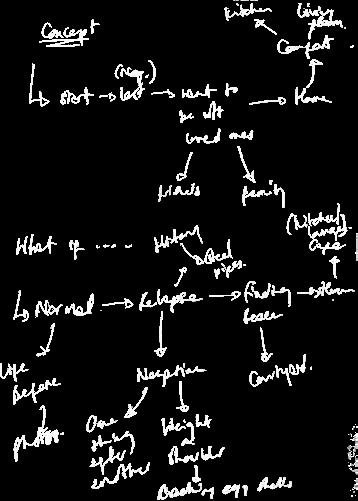 Kitchen
Living
room
Concept
Comfort
(neg.)
Start
lost
want to
be with
loved ones
Home
friends
family
(Kitchen)
What if .....
History
Steel
pipes.
Normal
Relapse
finding
peace
Life
Before
photos.
Negative
Courtyard.
One
thing
after
another
Weight
on
shoulder
Breaking egg shells